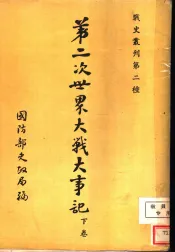 戰史叢刊第二種
第二次世界大戰大事記
下卷
國防部史政局編